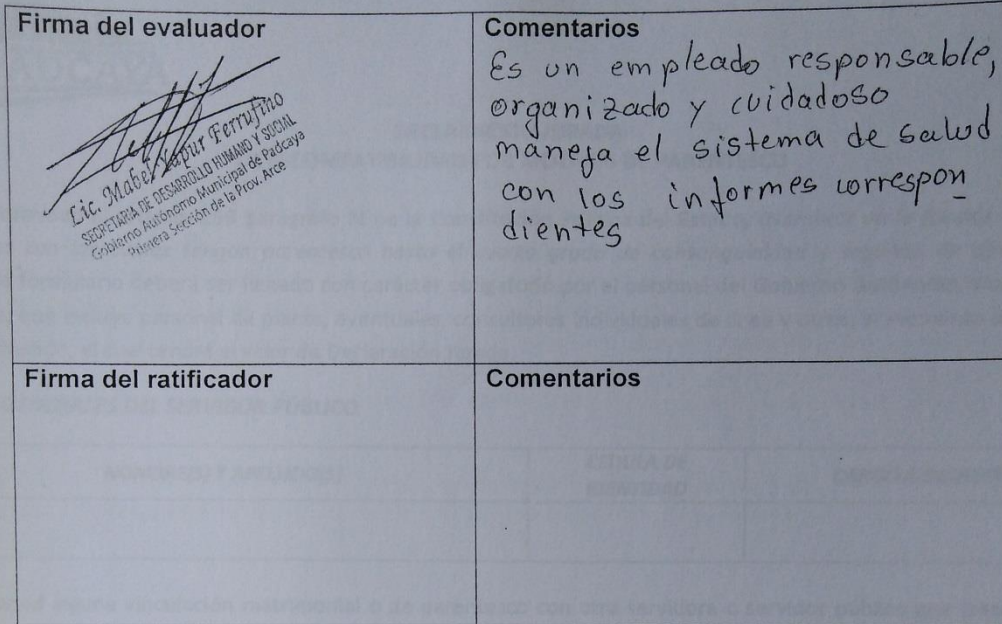 Firma del evaluador
Lic. Mabel Yapur Ferrufino
SECRETARIA DE DESARROLLO HUMANO Y SOCIAL
Gobierno Autónomo Municipal de Padcaya
Primera Sección de la Prov. Arce
Comentarios
Es un empleado responsable,
organizado y cuidadoso
maneja el sistema de salud
con los informes correspon_
dientes
Firma del ratificador
Comentarios